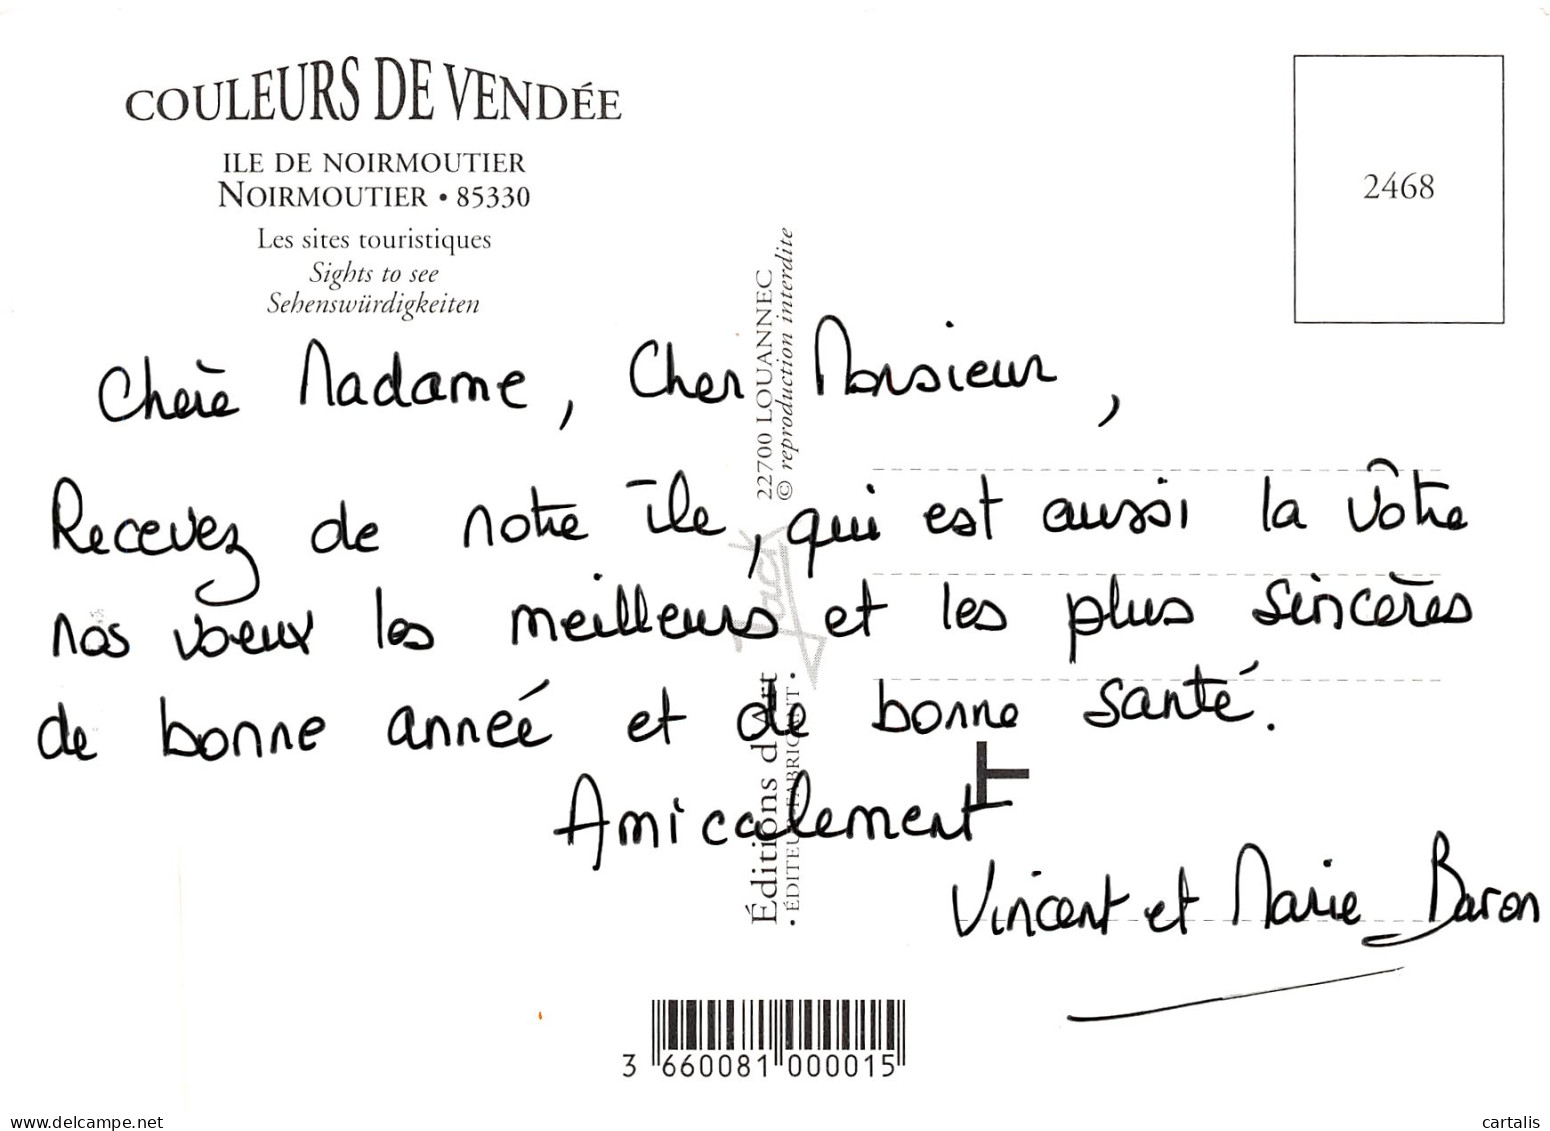 COULEURS DE VENDÉE
ILE DE NOIRMOUTIER
NOIRMOUTIER • 85330
Les sites touristiques
Sights to see
Sehenswürdigkeiten
2468
Chère Madame, Cher Monsieur,
Recevez de notre île, qui est aussi la vôtre
nos voeux les meilleurs et les plus sincères
de bonne année et de bonne santé.
Amicalement
Vincent et Marie Baron
Éditions d'Art Jack 22700 LOUANNEC
• ÉDITEUR-FABRICANT • © reproduction interdite
3 660081 000015
delcampe.net
cartalis